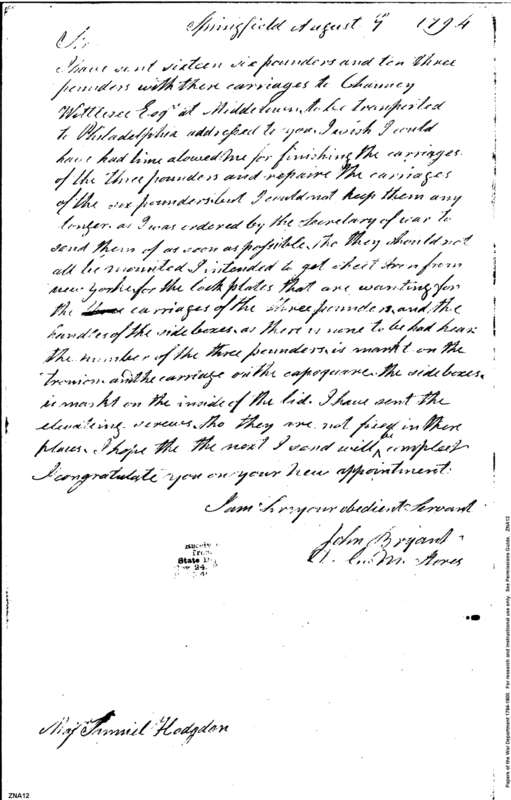 Springfield August 7th 1794
Sir
I have sent sixteen six pounders and ten three
pounders with there carriages to Chauncy
Wittlesee Esqr at Middletown, to be tranported
to Philadelphia addressed to you. I wish I could
have had time alowed me for finishing the carriages
of the three pounders and repaire the carriages
of the six pounders but I could not keep them any
longer. as I was ordered by the Secretary of war to
send them of as soon as possible, tho they should not
all be mounted I intended to get sheet Iron from
new york for the lock plates that are wanting for
the carriages of the three pounders, and the
handles of the side boxes, as there is none to be had hear
the number of the three pounders is markt on the
tronion and the carriage on the capsquarre. the side boxes
is markt on the inside of the lid. I have sent the
elevateing screws, tho they are not fixed in there
places. I hope the the next I send will be compleat
I congratulate you on your new appointment.
I am Sir your obedient Servant
John Bryant
M. Stores
Receiv
from
State D
24,
Maj Samuel Hodgdon
ZNA12
Papers of the War Department 1784-1800. For research and instructional use only. See Permissions Guide. ZNA12